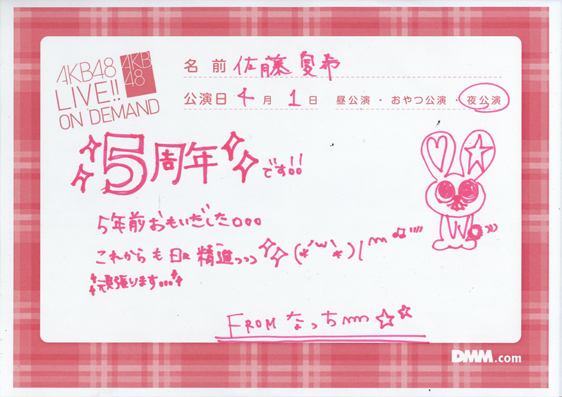 AKB48
LIVE!!
ON DEMAND
AKB
48
名前 佐藤夏希
公演日 4月1日 昼公演・おやつ公演・夜公演
5周年です!!
5年前おもいだした。。。
これからも日々精進っっっ(*´ω`*)/m♪""
頑張ります...
FROMなっちm☆☆
DMM.com